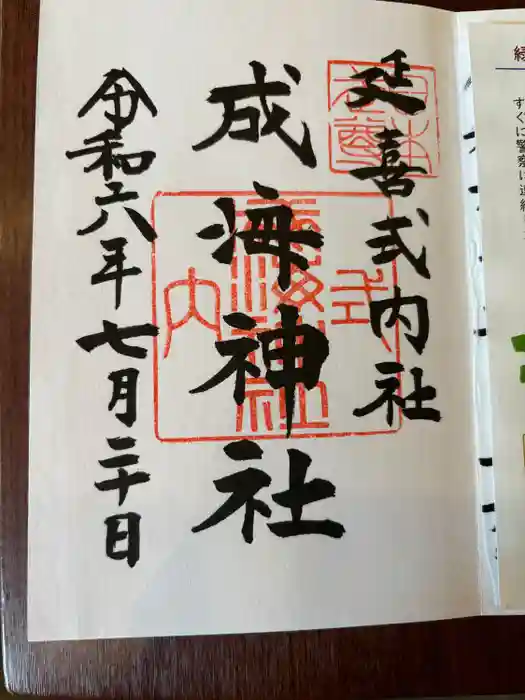 すぐに警察に連
延喜式内社
成海神社
令和六年七月二十日
式
内